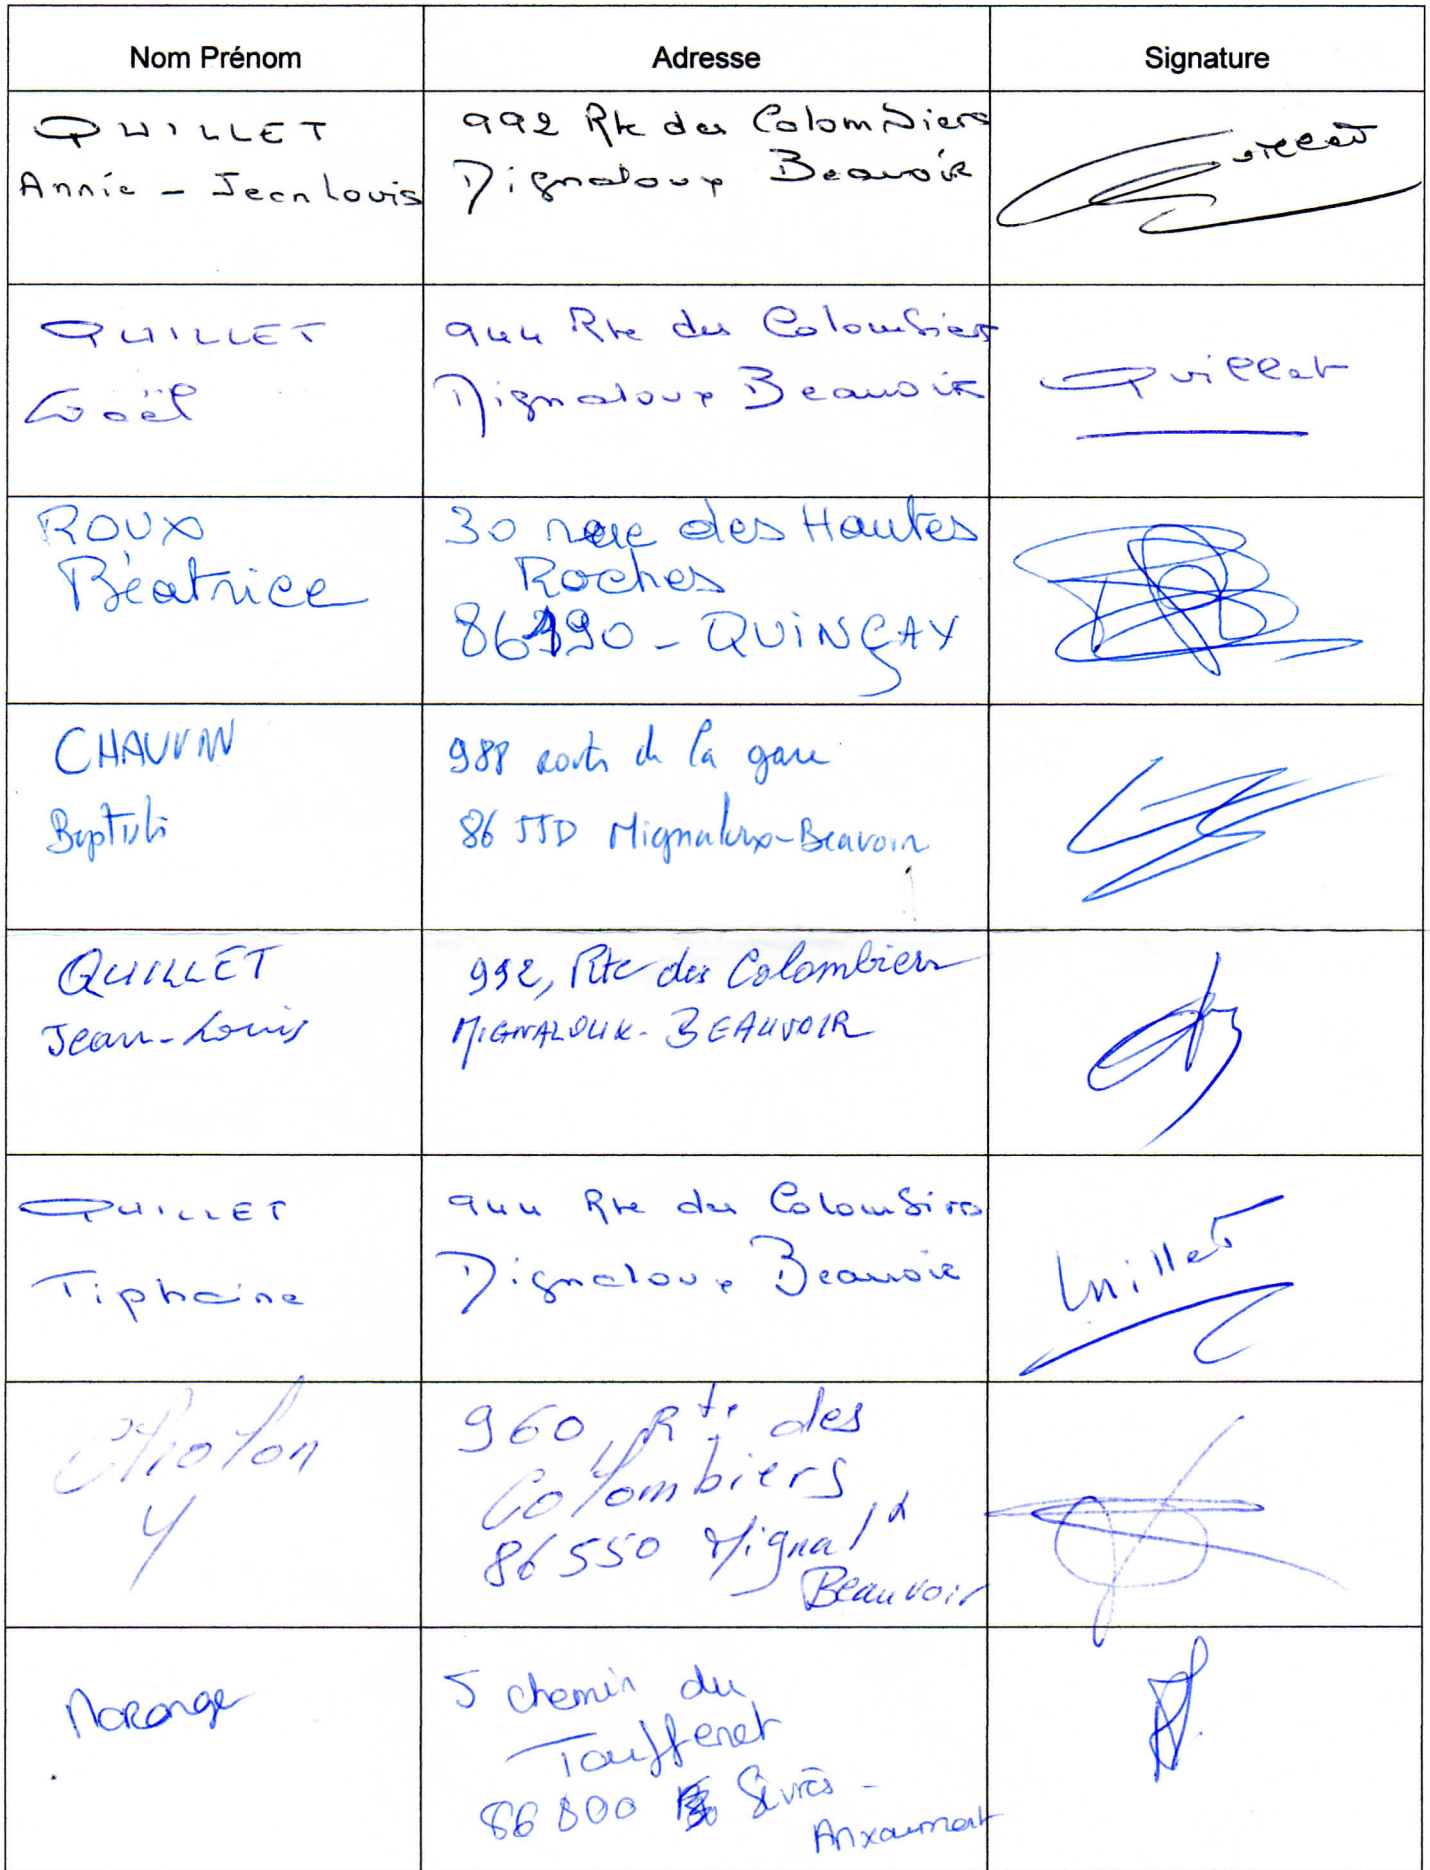 Nom Prénom
Adresse
Signature
QUILLET
Annie - Jean Louis
992 Rte des Colombiers
Mignaloux Beauvoir
Quillet
QUILLET
Gaël
944 Rte des Colombiers
Mignaloux Beauvoir
Quillet
ROUX
Béatrice
30 rue des Hautes
Roches
86190 - QUINÇAY
CHAUVIN
Baptiste
988 route de la gare
86 550 Mignaloux-Beauvoir
QUILLET
Jean-Louis
992, Rte des Colombiers
MIGNALOUX-BEAUVOIR
QUILLET
Tiphaine
944 Rte des Colombiers
Mignaloux Beauvoir
Quillet
Y
960, Rte des
Colombiers
86 550 Mignal
Beauvoir
Marange
5 chemin du
86 800 Sèvres -
Anxaumont